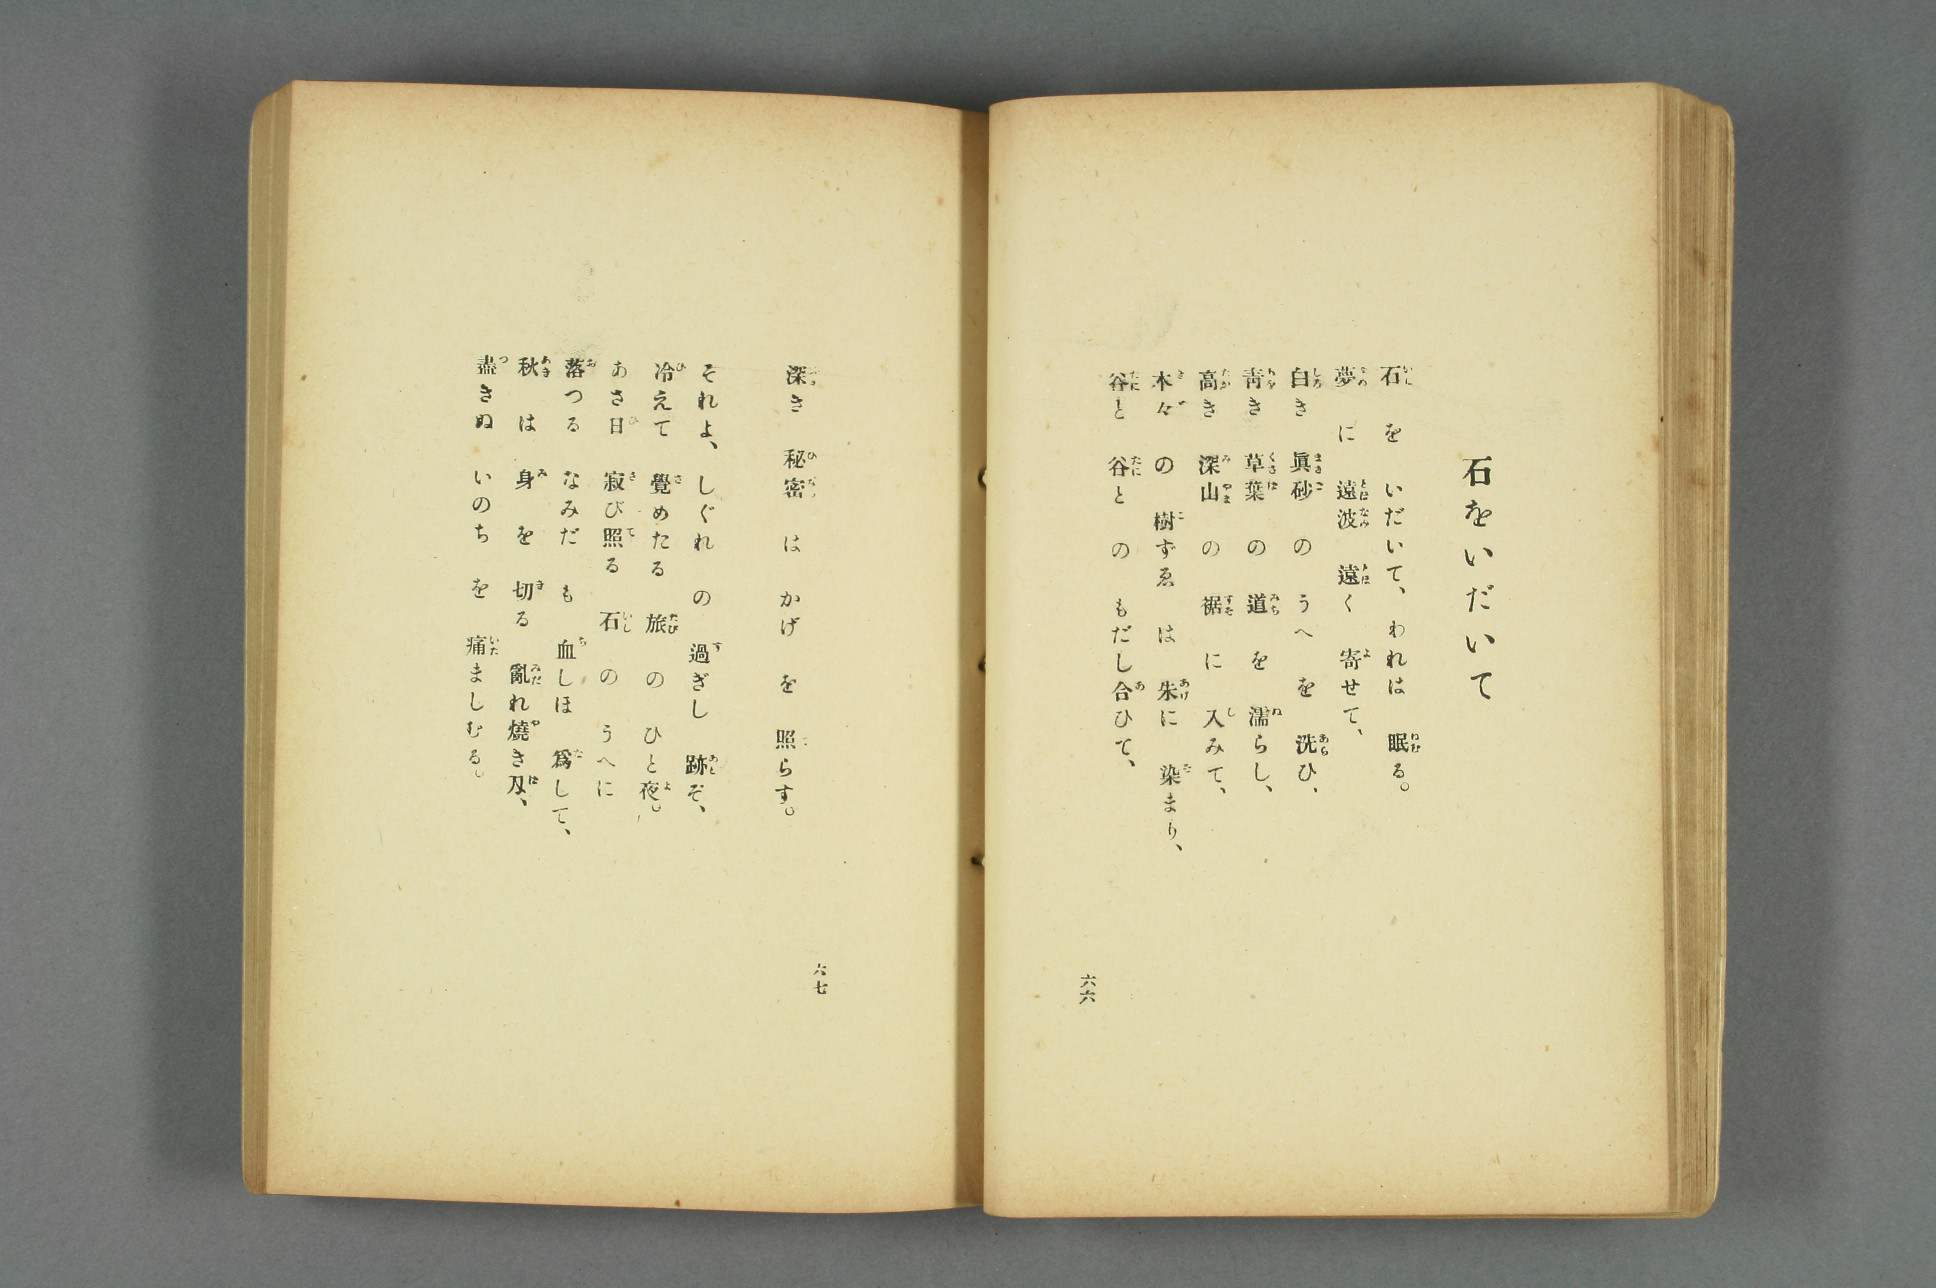 石をいだいて
石 を いだいて、われは 眠る。
夢 に 遠波 遠く 寄せて、
白き 眞砂 の うへ を 洗ひ、
靑き 草葉 の 道 を 濡らし、
高き 深山 の 裾 に 入みて、
木々 の 樹ずゑ は 朱に 染まり、
谷と 谷と の もだし合ひて、
六六
深き 秘密 は かげ を 照らす。
それよ、しぐれ の 過ぎし 跡ぞ、
冷えて 覺めたる 旅 の ひと夜。
あさ日 寂び照る 石 の うへに
落つる なみだ も 血しほ 爲して、
秋 は 身 を 切る 亂れ燒き刄、
盡きぬ いのち を 痛ましむる。
六七